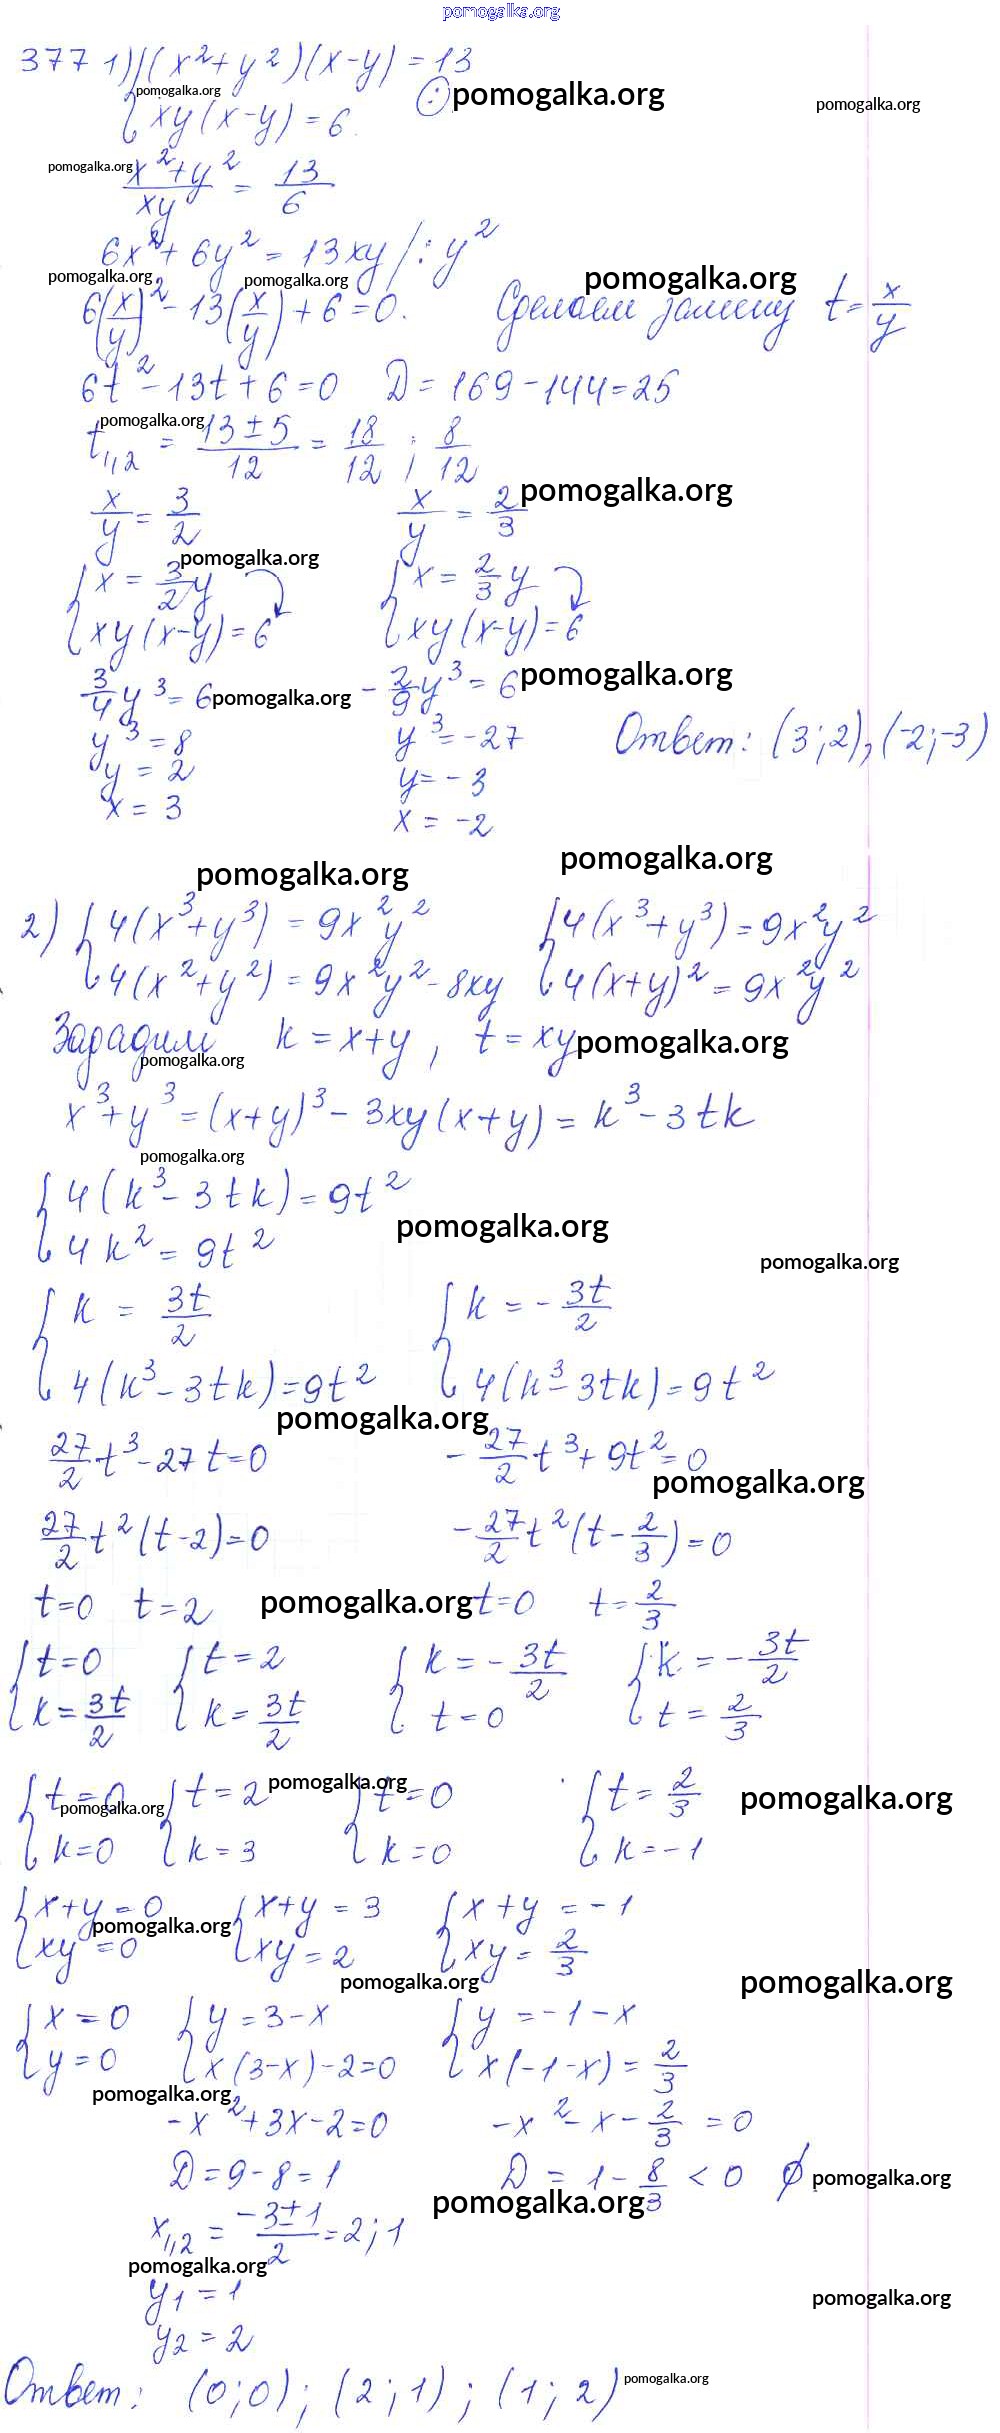 pomogalka.org
377 1) { (x²+y²)(x-y) = 13
pomogalka.org : pomogalka.org pomogalka.org
xy(x-y) = 6.
pomogalka.org
(x²+y²)/(xy) = 13/6
6x²+6y² = 13xy /: y²
pomogalka.org pomogalka.org pomogalka.org
6(x/y)² - 13(x/y) + 6 = 0. Сделаем замену t = x/y
6t² - 13t + 6 = 0 D = 169 - 144 = 25
pomogalka.org
t₁,₂ = (13 ± 5)/12 = 18/12 ; 8/12
x/y = 3/2 x/y = 2/3 pomogalka.org
pomogalka.org
{ x = 3/2 y { x = 2/3 y
xy(x-y) = 6 xy(x-y) = 6
3/4 y³ = 6 pomogalka.org - 2/9 y³ = 6 pomogalka.org
y³ = 8 y³ = -27 Ответ: (3;2), (-2;-3)
y = 2 y = -3
x = 3 x = -2
pomogalka.org pomogalka.org
2) { 4(x³+y³) = 9x²y² { 4(x³+y³) = 9x²y²
4(x²+y²) = 9x²y² - 8xy 4(x+y)² = 9x²y²
k = x+y, t = xy pomogalka.org
pomogalka.org
x³+y³ = (x+y)³ - 3xy(x+y) = k³ - 3tk
pomogalka.org
{ 4(k³ - 3tk) = 9t²
pomogalka.org
4k² = 9t²
pomogalka.org
{ k = 3t/2 { k = - 3t/2
4(k³ - 3tk) = 9t² 4(k³ - 3tk) = 9t²
pomogalka.org
27/2 t³ - 27t = 0 - 27/2 t³ + 9t² = 0
pomogalka.org
27/2 t²(t-2) = 0 - 27/2 t²(t - 2/3) = 0
t=0 t=2 pomogalka.org t=0 t = 2/3
{ t=0 { t=2 { k = - 3t/2 { k = - 3t/2
k = 3t/2 k = 3t/2 t = 0 t = 2/3
{ t=0 { t=2 pomogalka.org { t=0 { t = 2/3 pomogalka.org
pomogalka.org
k=0 k=3 k=0 k=-1
{ x+y=0 { x+y = 3 { x+y = -1
pomogalka.org
xy=0 xy = 2 xy = 2/3
pomogalka.org pomogalka.org
{ x=0 { y=3-x { y = -1-x
y=0 x(3-x)-2=0 x(-1-x) = 2/3
pomogalka.org
-x²+3x-2=0 -x²-x- 2/3 = 0
D=9-8=1 D = 1 - 8/3 < 0 ∅ pomogalka.org
pomogalka.org
x₁,₂ = (-3±1)/2 = 2; 1
pomogalka.org
y₁ = 1 pomogalka.org
y₂ = 2
Ответ: (0;0); (2;1); (1;2) pomogalka.org